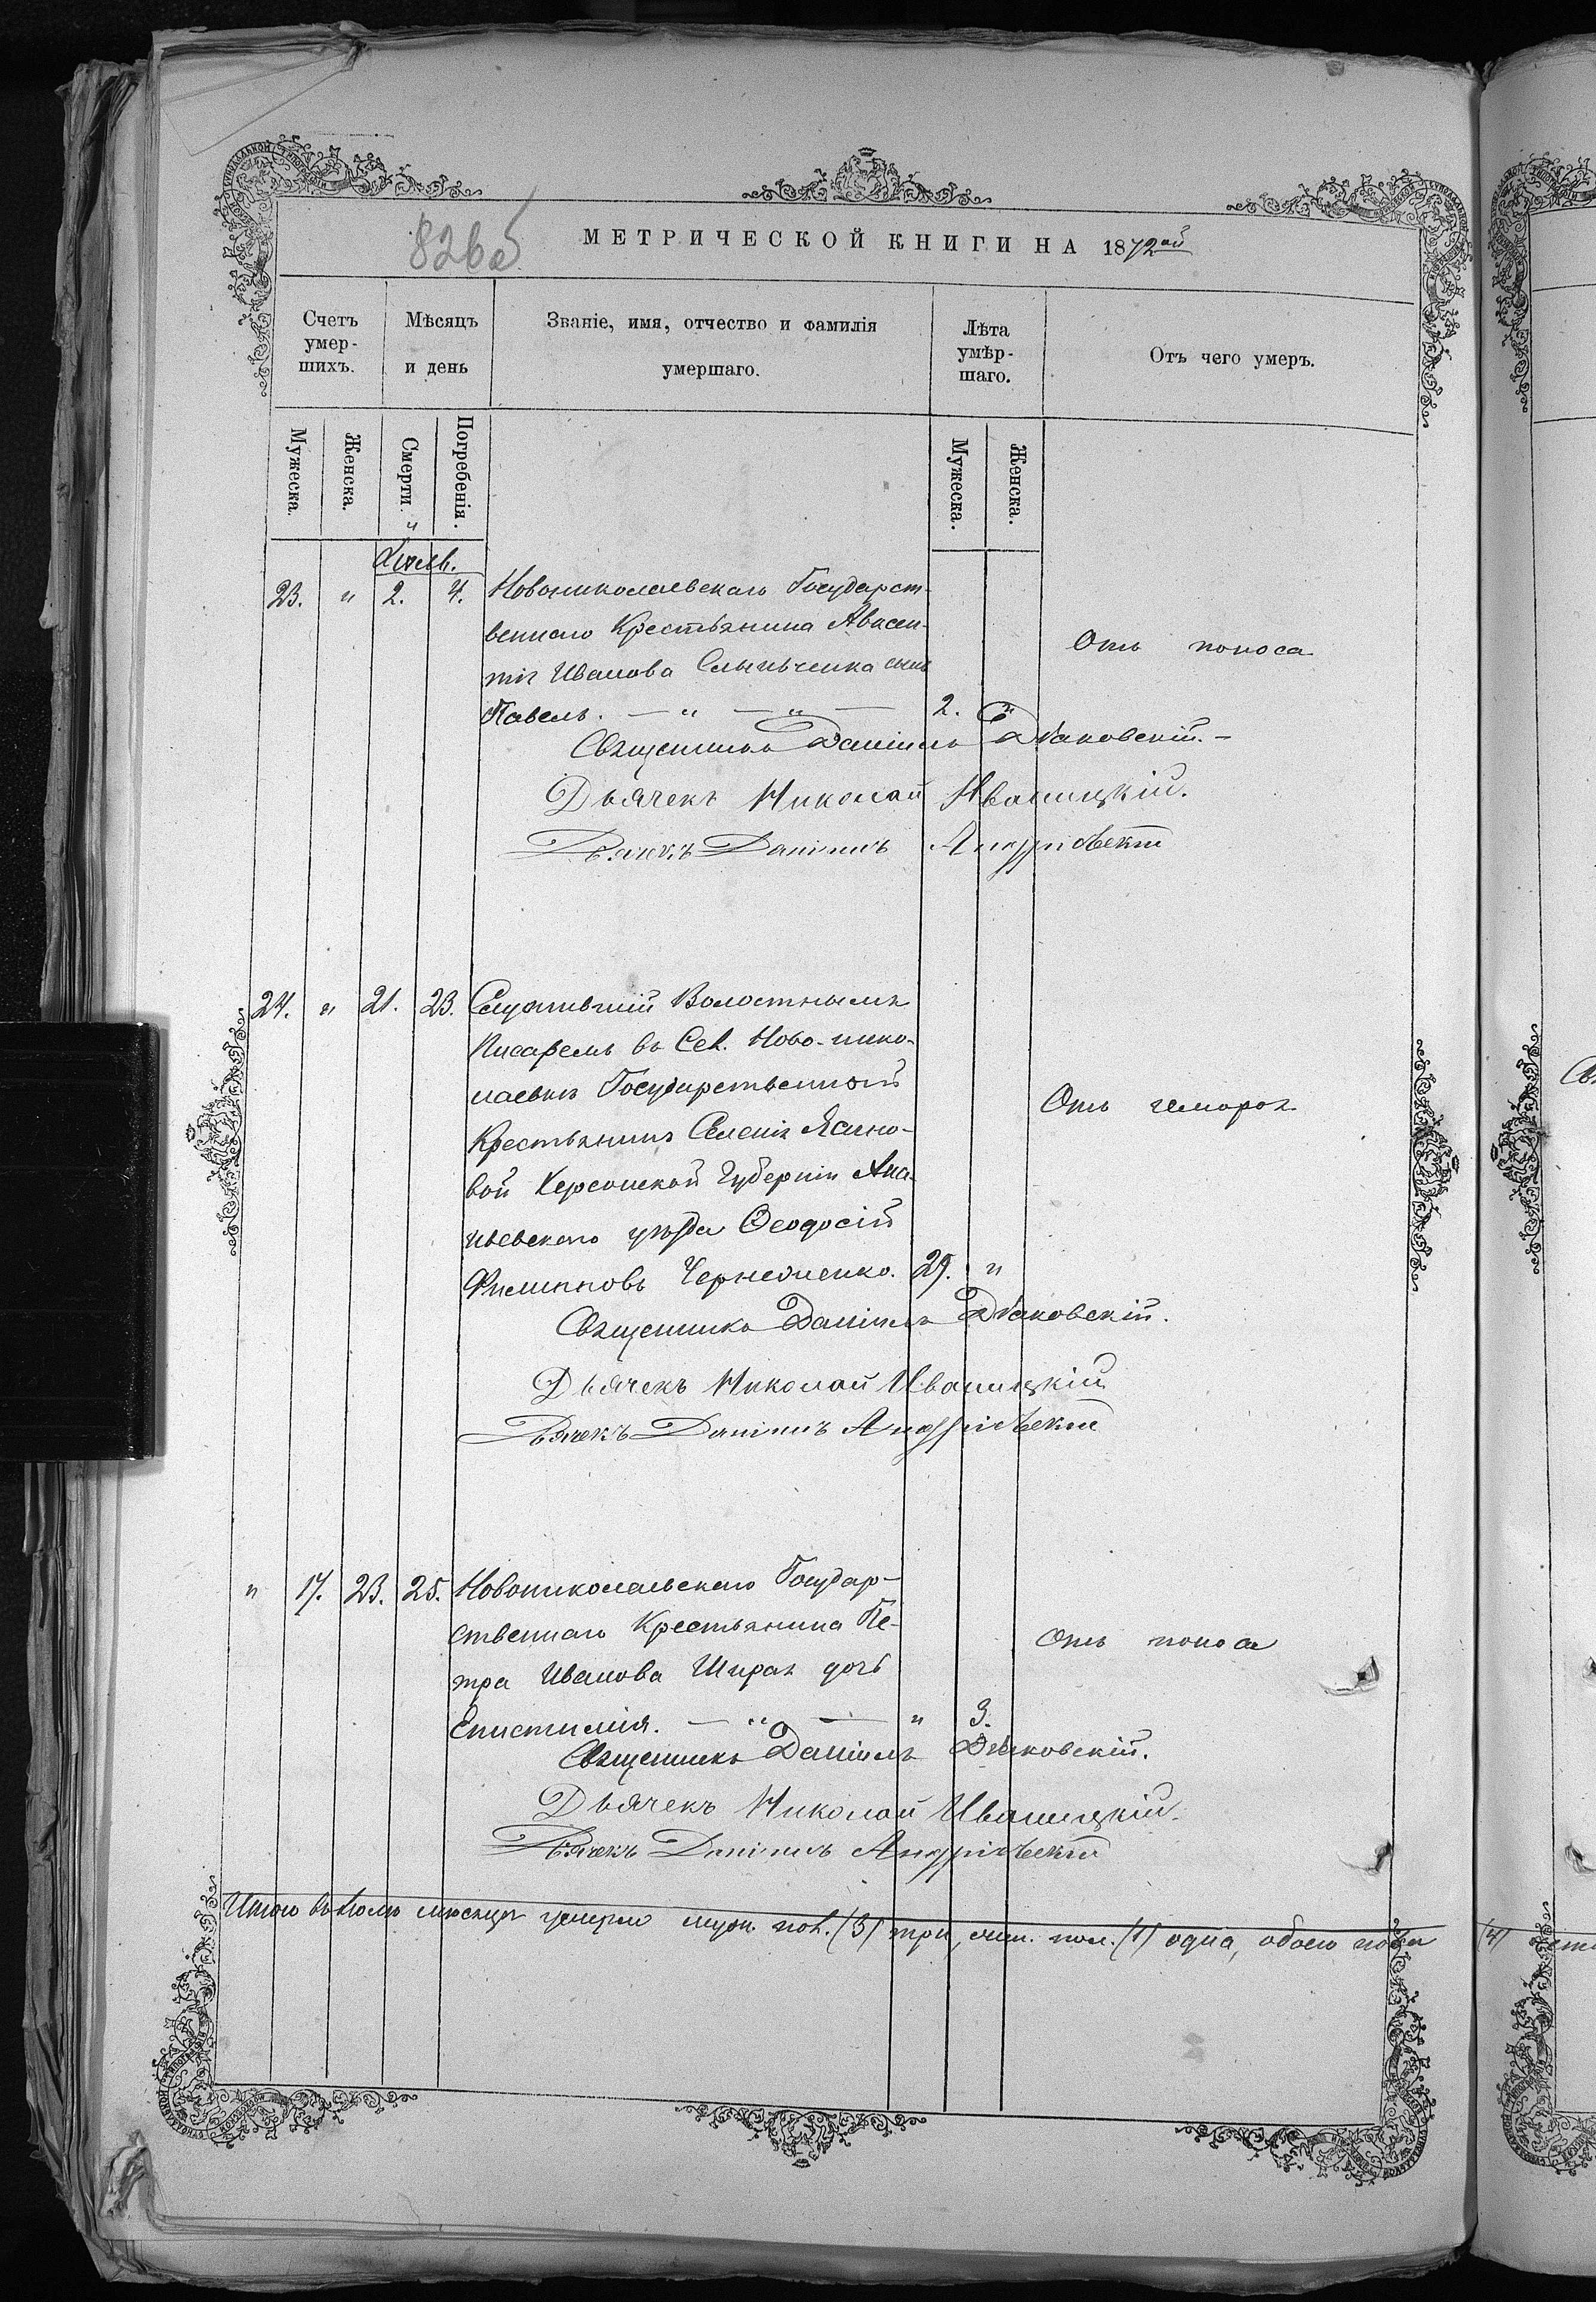 826об
МЕТРИЧЕСКОЙ КНИГИ НА 1872ой
Счетъ умер-шихъ.
Мѣсяцъ и день
Званіе, имя, отчество и фамилія умершаго.
Лѣта умѣр-шаго.
Отъ чего умеръ.
Мужеска.
Женска.
Смерти.
Погребенія.
Мужеска.
Женска.
Іюль.
23. " 2. 4. Новониколаевскаго Государст-
веннаго Крестьянина Авксен-
тія Иванова сынъ
Отъ поноса
Павелъ. — " — " — 2. "
Священникъ Даніилъ Дьяковскій. —
Дьячекъ Николай Иваницкій.
Дьячекъ Даніилъ Андріевскій
24. " 21. 23. Служившій Волостнымъ
Писаремъ въ Сел. Ново-нико-
лаевкѣ Государственный
Отъ гемороя
Крестьянинъ Селенія Ясино-
вой Херсонской Губерніи Ана-
ньевскаго уѣзда Ѳеодосій
Филиповъ Черненченко. 29. "
Священникъ Даніилъ Дьяковскій.
Дьячекъ Николай Иваницкій
Дьячекъ Даніилъ Андріевскій
" 17. 23. 25. Новониколаевскаго Государ-
ственнаго Крестьянина Пе-
тра Иванова Ширая дочь
Отъ поноса
Епистимія. — " — " 3.
Священникъ Даніилъ Дьяковскій.
Дьячекъ Николай Иваницкій.
Дьячекъ Даніилъ Андріевскій
Итого въ Іюлѣ мѣсяцѣ умерло муж. пол. (3) три, жен. пол. (1) одна, обоего пола (4)